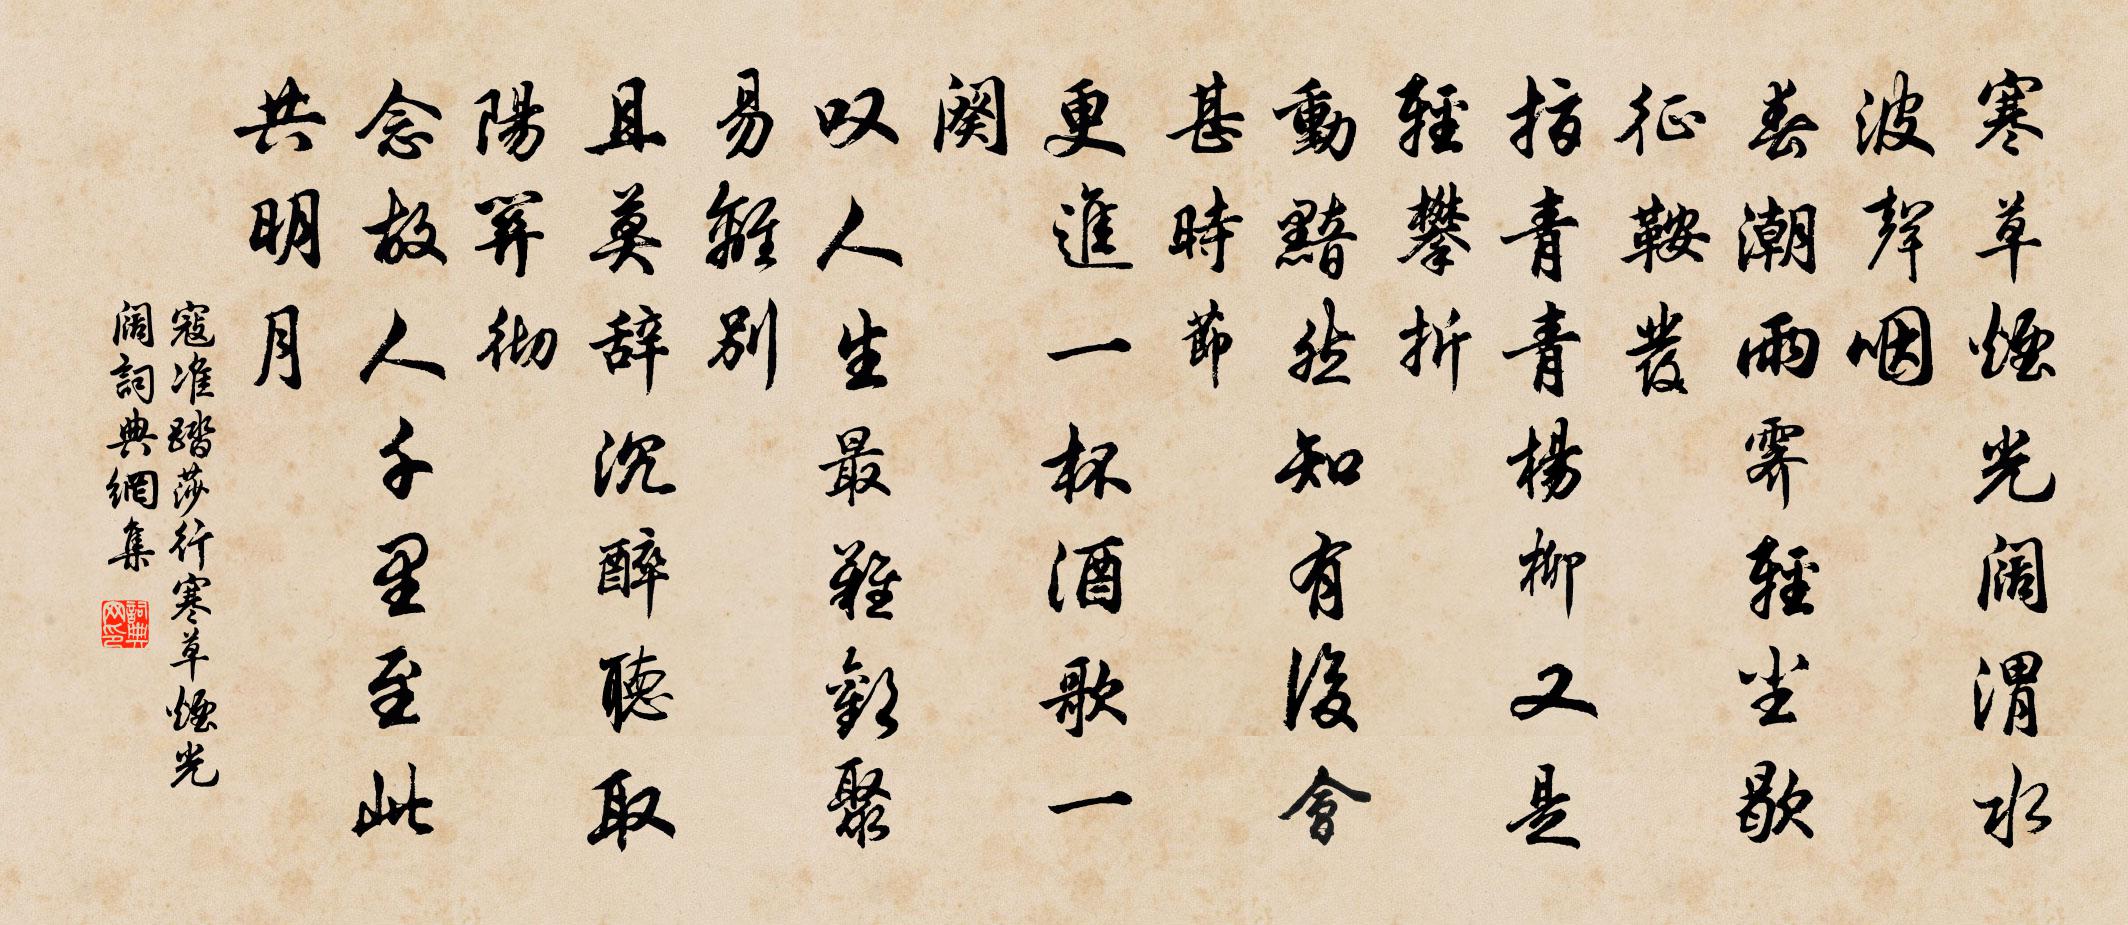 寒草煙光闊渭水
波聲咽
春潮雨霽輕尘歇
征鞍發
指青青楊柳又是
輕攀折
動黯然知有後會
甚時節
更進一杯酒歌一
闋
叹人生最難歡聚
易離別
且莫辞沉醉聽取
陽関彻
念故人千里至此
共明月
寇准踏莎行寒草煙光
闊詞典網集
詞典网印